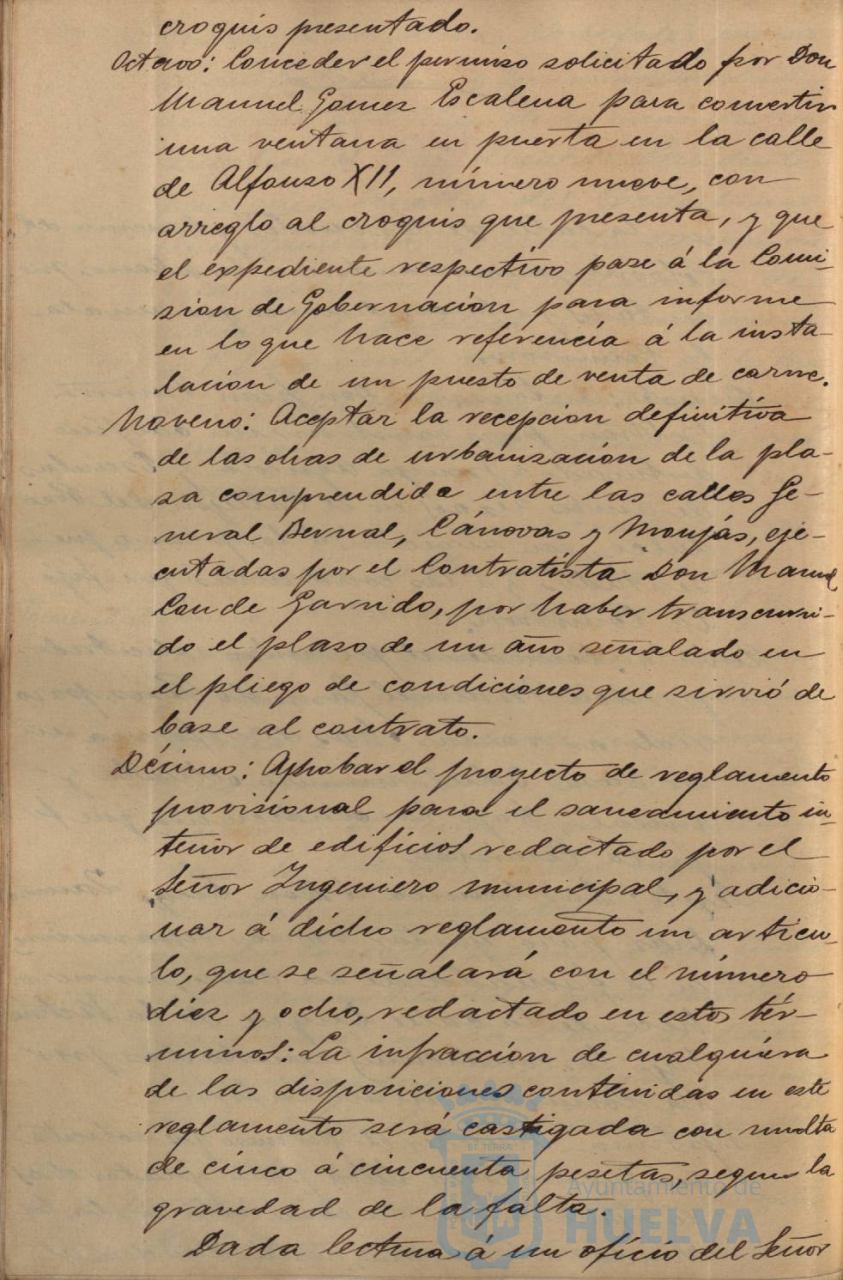 croquis presentado.
Octavo: Conceder el permiso solicitado por Don
Manuel Gomez Escalena para convertir
una ventana en puerta en la calle
de Alfonso XII, número nueve, con
arreglo al croquis que presenta, y que
el expediente respectivo pase á la Comi-
sion de Gobernacion para informe
en lo que hace referencía á la insta-
lación de un puesto de venta de carne.
Noveno: Aceptar la recepcion definitiva
de las obras de urbanización de la pla-
za comprendida entre las calles Ge-
neral Bernal, Cánovas y Monjás, eje-
cutadas por el Contratista Don Manuel
Conde Garrido, por haber transcurri-
do el plazo de un año señalado en
el pliego de condiciones que sirvió de
base al contrato.
Décimo: Aprobar el proyecto de reglamento
provisional para el saneamiento in-
terior de edificios redactado por el
Señor Ingeniero municipal, y adicio-
nar á dicho reglamento un articu-
lo, que se señalará con el número
diez y ocho, redactado en estos tér-
minos: La infracción de cualquiera
de las disposiciones contenidas en este
reglamento será castigada con multa
de cinco á cincuenta pesetas, segun la
gravedad de la falta.
Dada lectura á un oficio del Señor
Ayuntamiento de
HUELVA